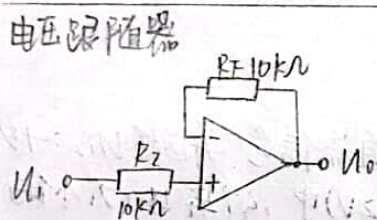 电压跟随器
RF 10kΩ
-
R2
Ui
+
Uo
10kΩ